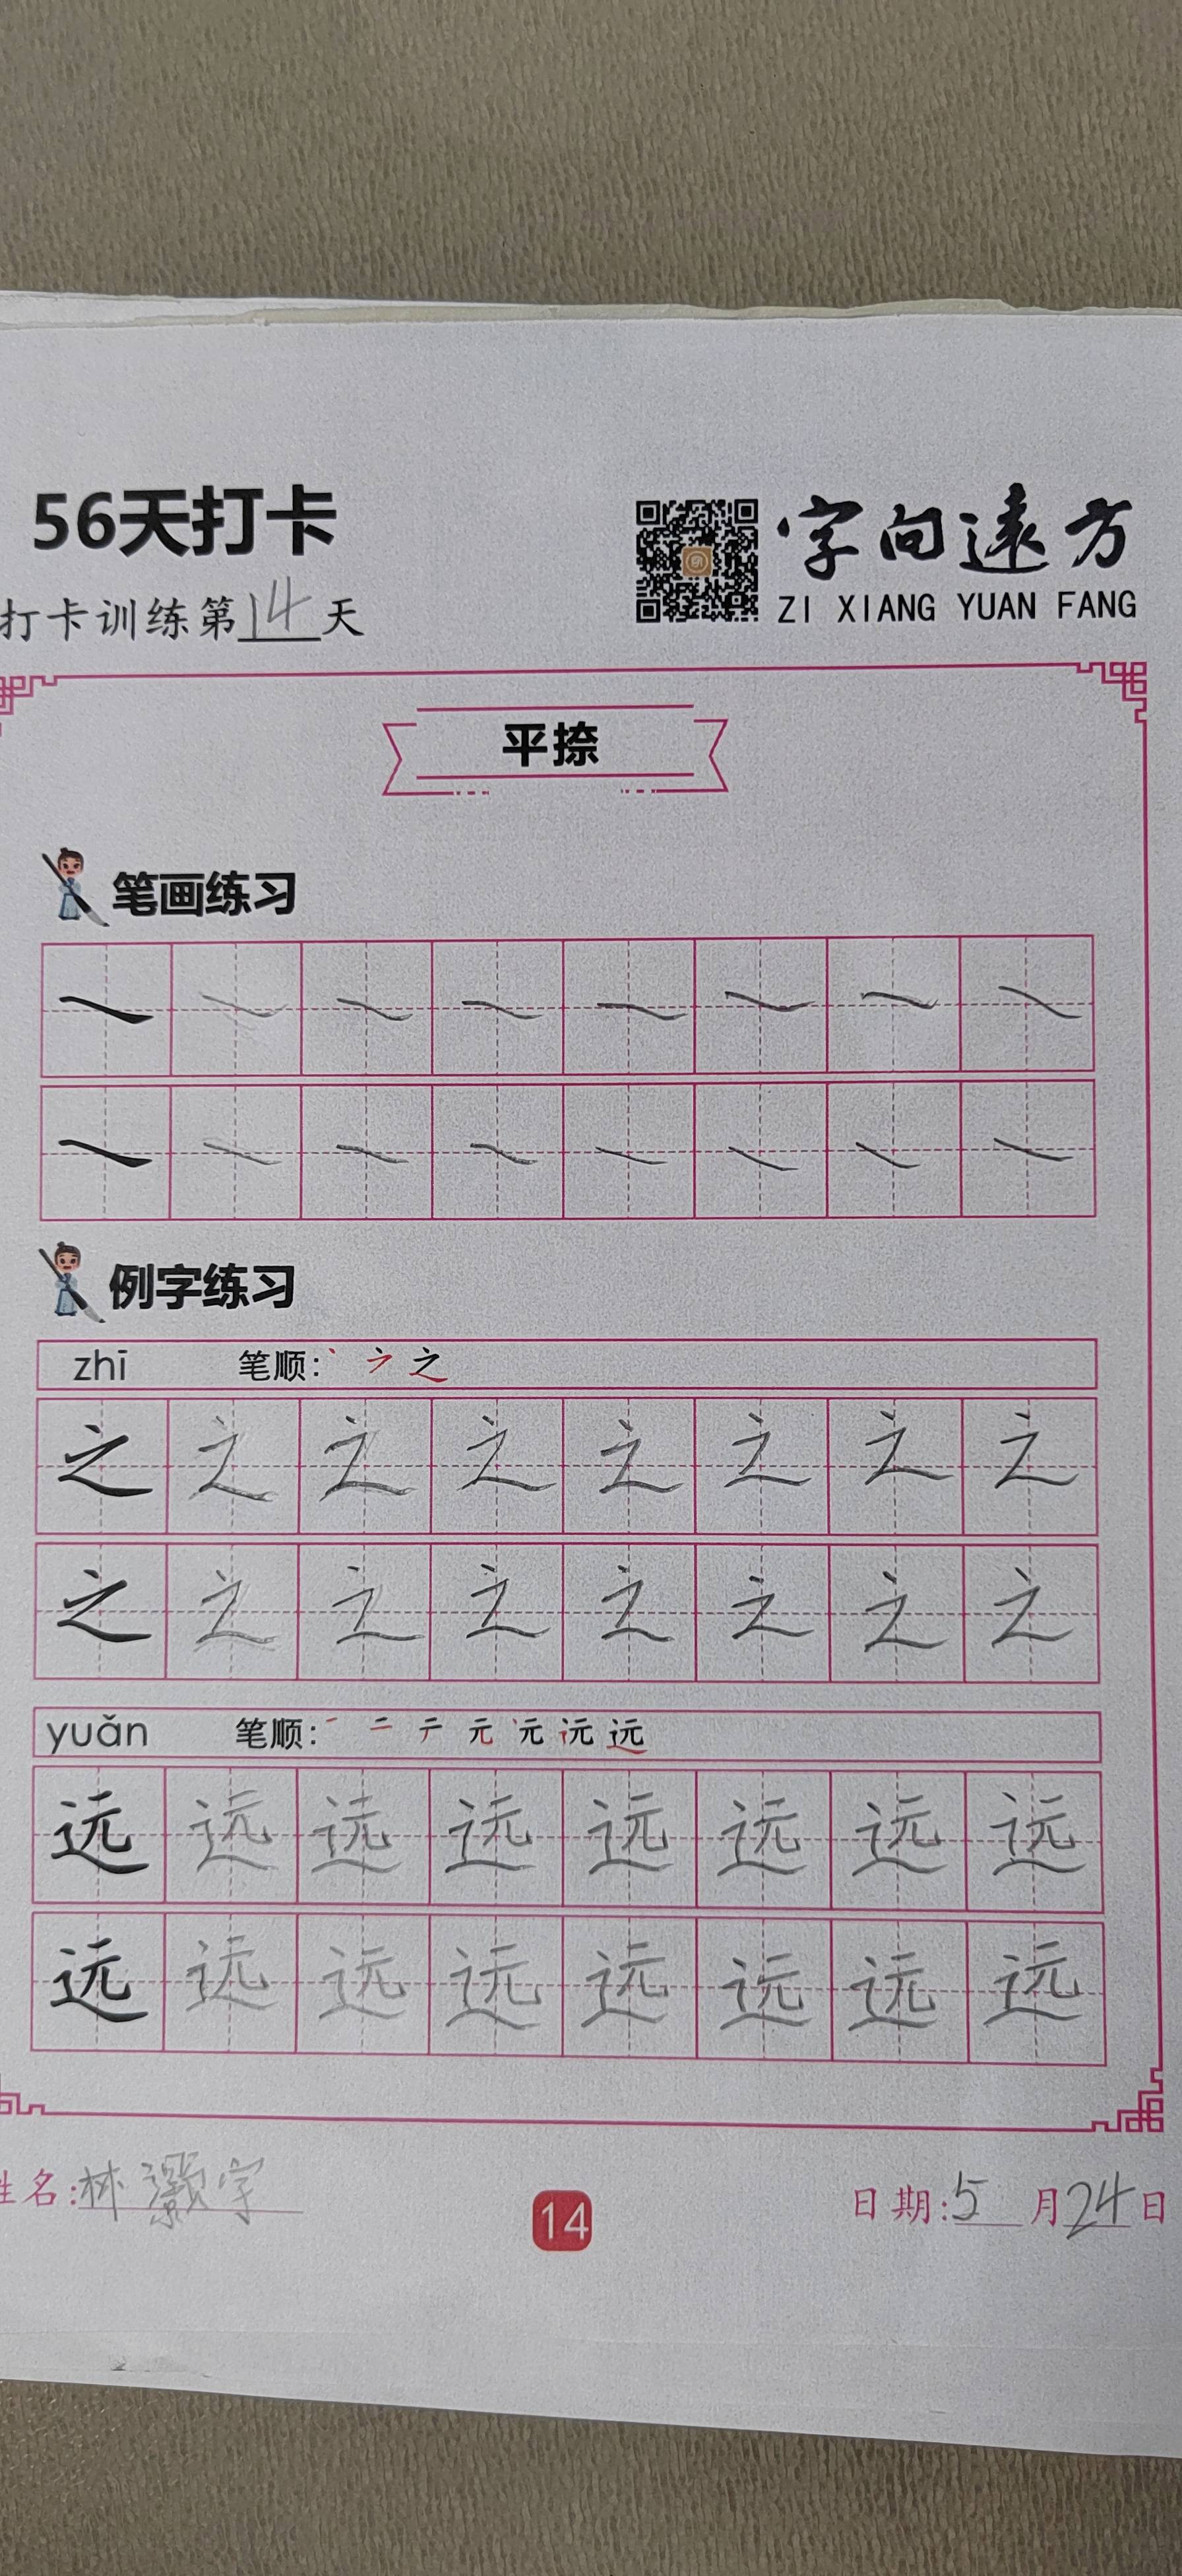 56天打卡
字向遠方
ZI XIANG YUAN FANG
打卡训练第14天
平捺
笔画练习
例字练习
zhī 笔顺: 丶 ㇇ 之
之 之 之 之 之 之 之 之
之 之 之 之 之 之 之 之
yuǎn 笔顺: 一 二 テ 元 元 远 远
远 远 远 远 远 远 远 远
远 远 远 远 远 远 远 远
姓名:林灏宇
14
日期:5月24日